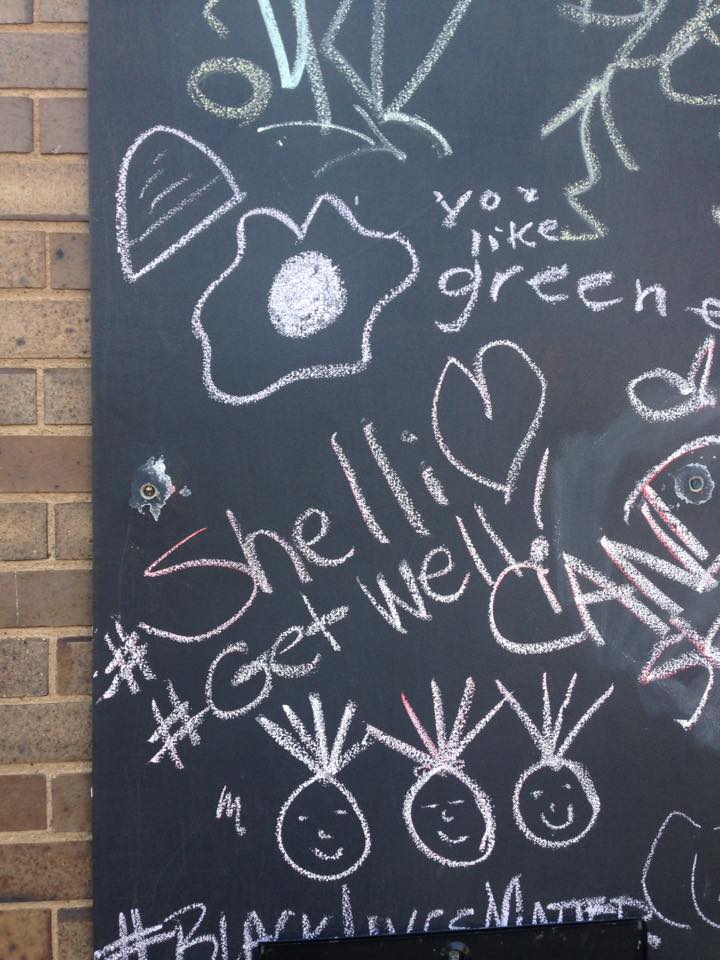 you
like
green e
#Shelli
#Get well!
CAN
#BLACK LIVES MATTER